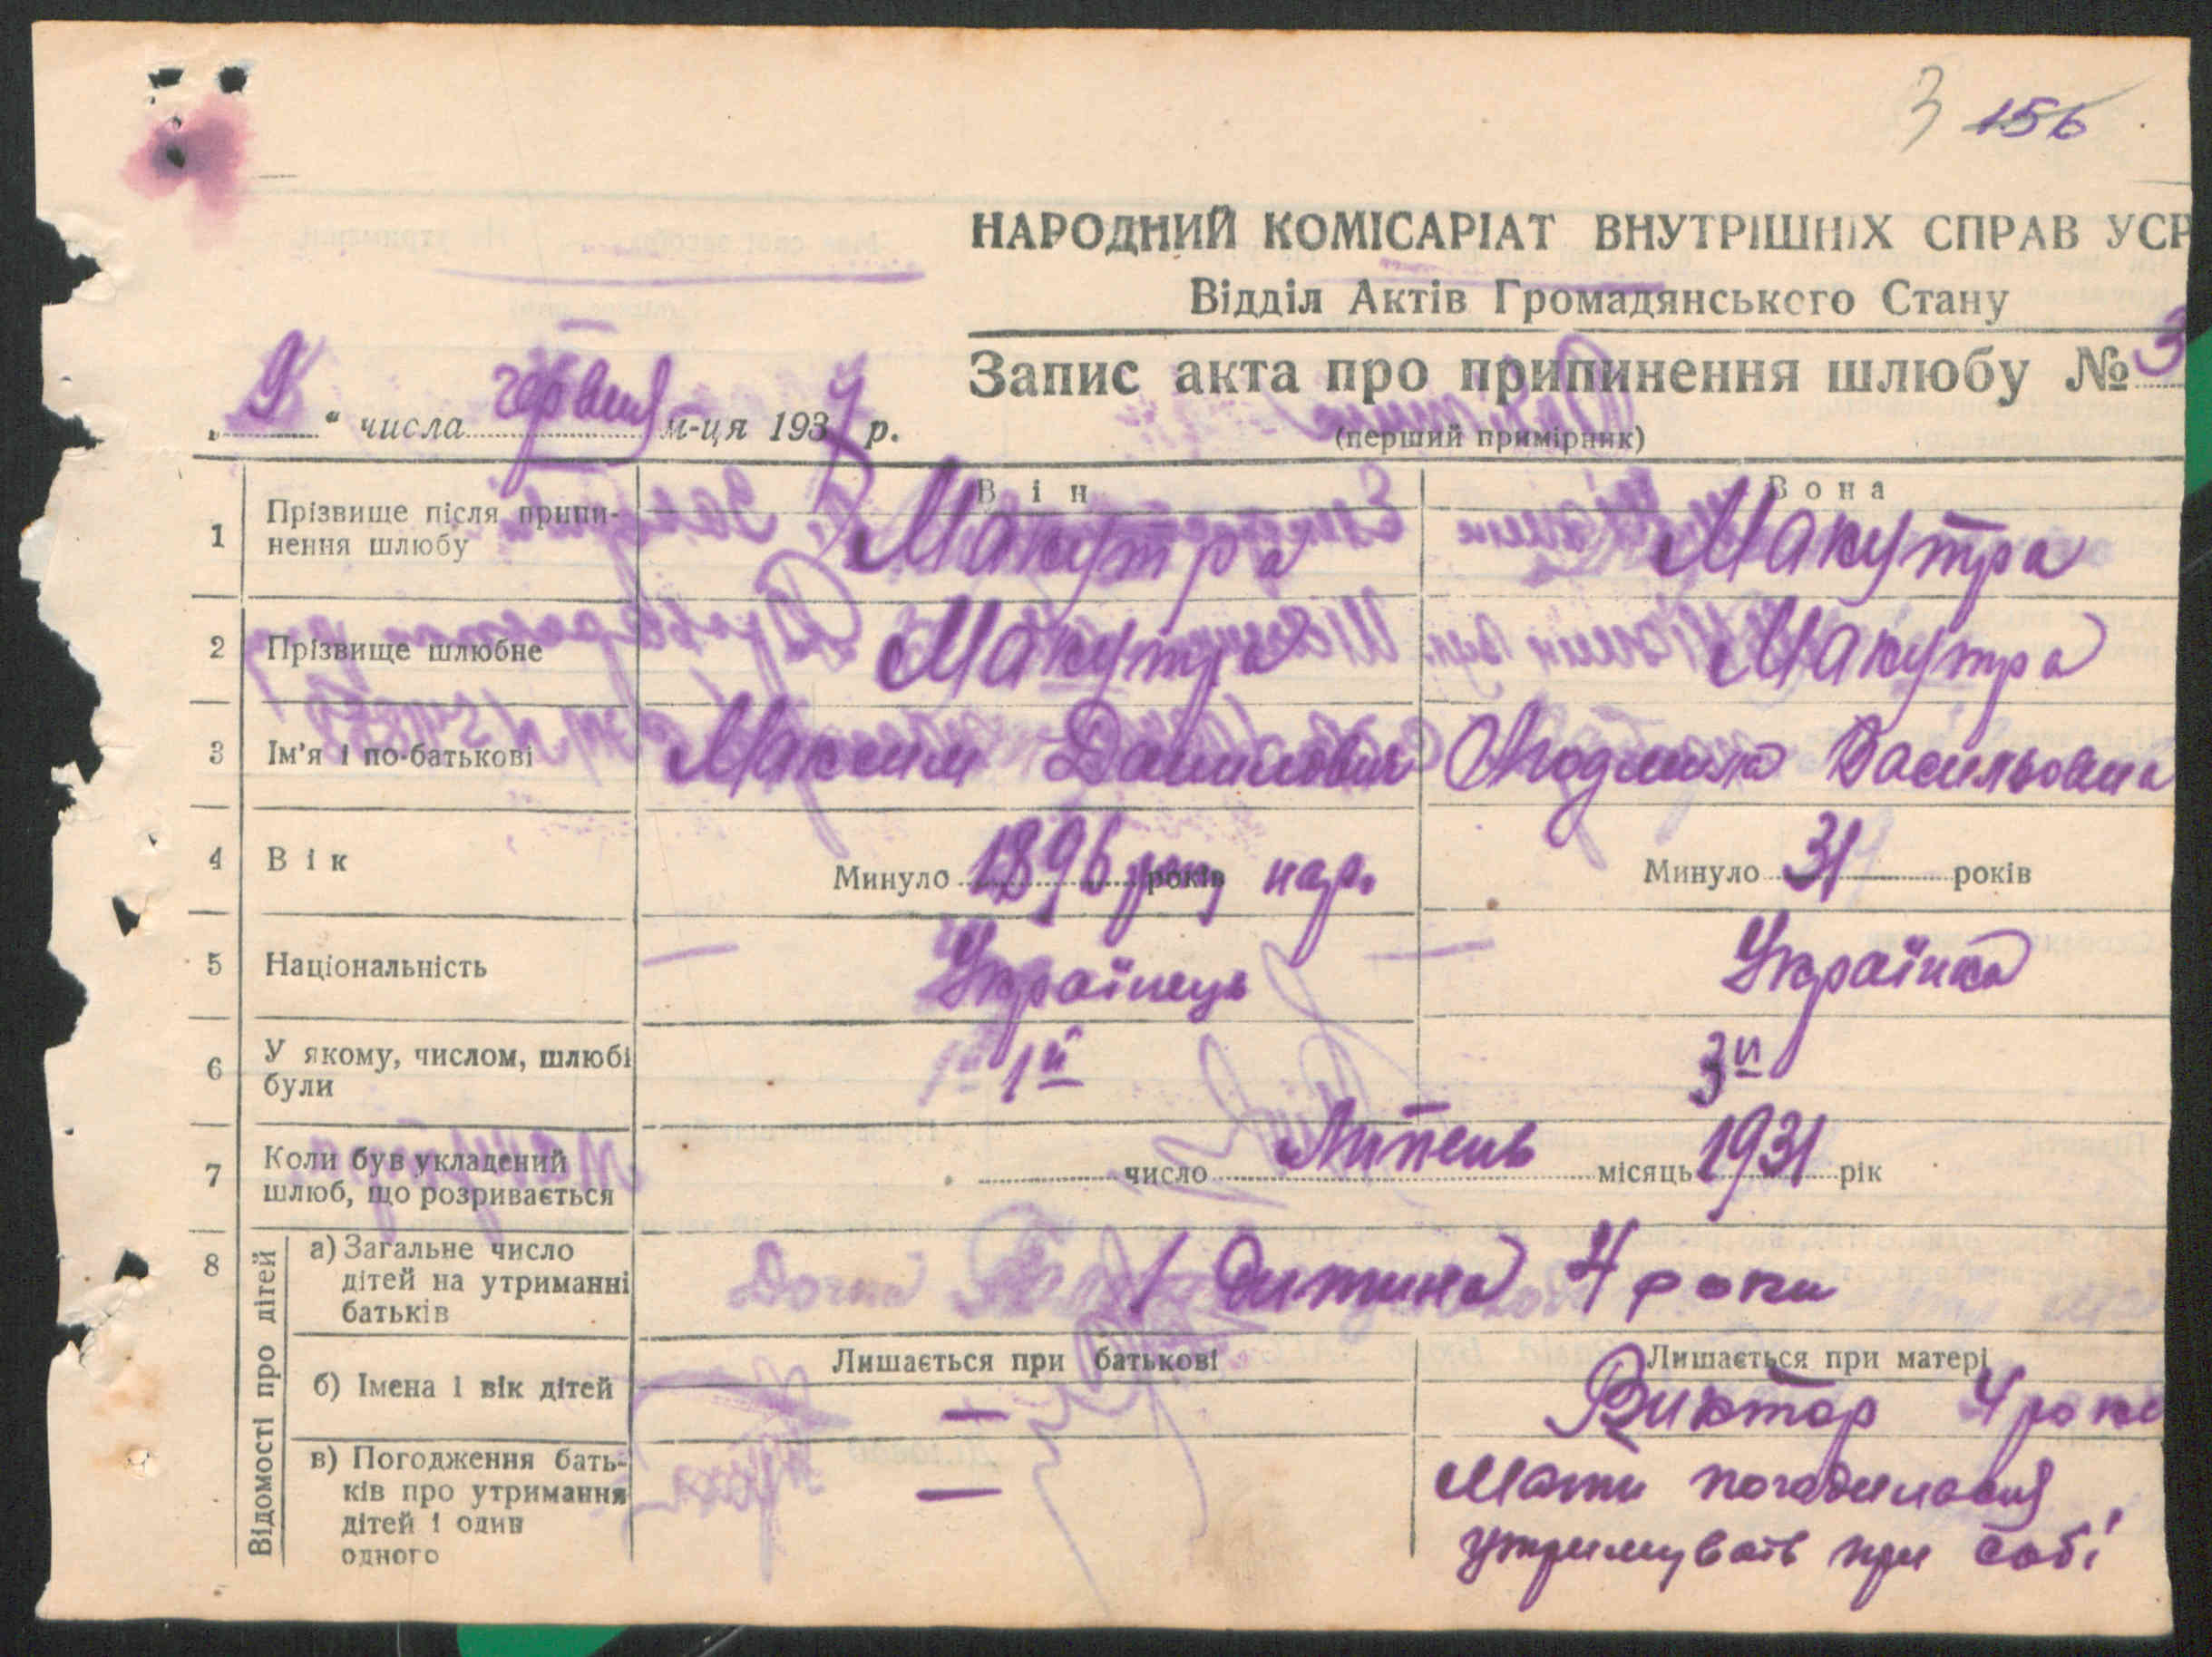 3 156
НАРОДНИЙ КОМІСАРІАТ ВНУТРІШНІХ СПРАВ УСР
Відділ Актів Громадянського Стану
Запис акта про припинення шлюбу № 3
(перший примірник)
„ 9 “ числа червня м-ця 1937 р.
Він Вона
1 Прізвище після припи-
нення шлюбу Макутра Макутра
2 Прізвище шлюбне Макутра Макутра
3 Ім'я і по-батькові Максим Данилович Людмила Васильовна
4 Вік Минуло 1896 року років нар. Минуло 31 років
5 Національність Українець Українка
6 У якому, числом, шлюбі
були 1й 3й
7 Коли був укладений
шлюб, що розривається число Липень місяць 1931 рік
8 Відомості про дітей
а) Загальне число
дітей на утриманні
батьків 1 дитина 4 роки
Лишається при батькові Лишається при матері
б) Імена і вік дітей — Виктор 4 роки
в) Погодження бать-
ків про утримання
дітей і один
одного — Мати погодилась
утримувать при собі